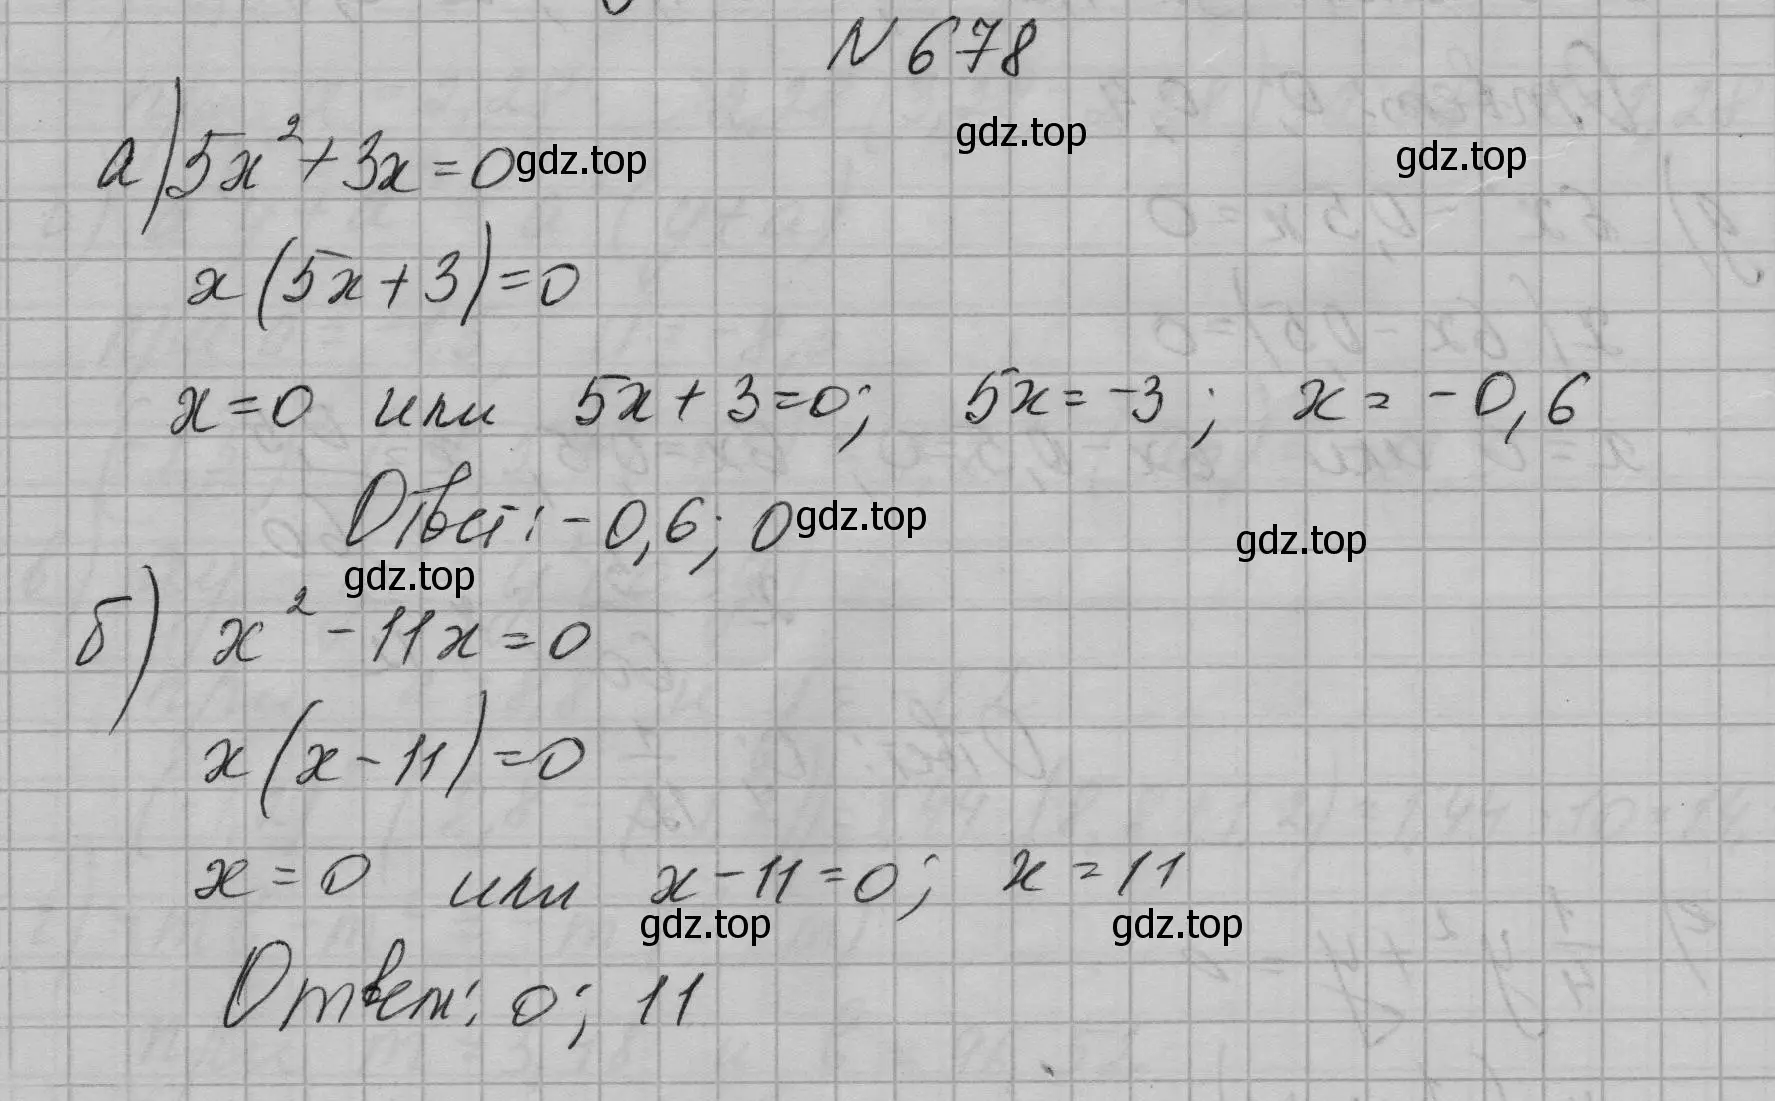 N 678
gdz.top
gdz.top
а) 5x² + 3x = 0 gdz.top
x(5x + 3) = 0
x = 0 или 5x + 3 = 0; 5x = -3; x = -0,6
Ответ: -0,6; 0 gdz.top
gdz.top
gdz.top
б) x² - 11x = 0
x(x - 11) = 0
x = 0 или x - 11 = 0; x = 11
gdz.top
gdz.top
Ответ: 0; 11